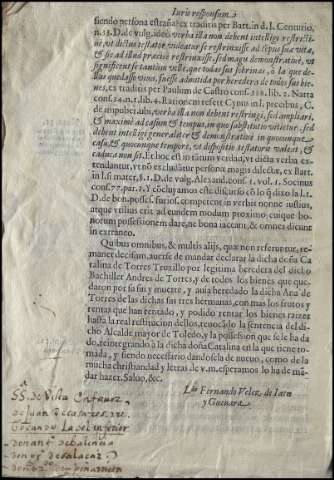 Iuris responsum.
siendo persona estraña: ex traditis per Bart. in d. l. Centurio,
n. 18. D. de vulg. ideo verba illa non debent intellige restricti-
uè, vt dictus testator videatur se restrinxisse ad tẽpus suæ vitæ,
& se ad illud præcisè restrinxisse, sed magis demonstratiuè, vt
significent se tantum velle, que todas sus sobrinas, ò la que de-
llas quedasse viua, fuesse admitida por heredera de todos sus bie-
nes, ex traditis per Paulum de Castro cons. 318. lib. 2. Natta
cons. 14. n. 1. lib. 4. Rationem refert Cynus in l. precibus, C.
de impuberi. aliis, verba illa non debent restringi, sed ampliari,
& maximè ad casum & tempus, in quo substitutio vtiletur, sed
debent intelligi generaliter & demonstratiuè in quocunque
casu, & quocunque tempore, vt dispositio testatoris valeat, &
caduca non sit. Et hoc est in tãtum verdad, vt dicta verba ex-
tendantur, vt nõ excludatur persona magis dilecta, ex Bart.
in l. si mater, §. 1. D. de vulg. Alexand. cons. 1. vol. 1. Socinus
cons. 77. par. 1. Y cõcluyamos este discurso cõ lo q̃ dixo la l. 1.
D. de bon. posses. furios. competent in verbis nonne iustius,
atque vtilius erit ad eundem modum proximo cuique bo-
norum possessionem dare, ne bona iaceant, & omnes dicunt
in extraneo.
Quibus omnibus, & multis alijs, quæ non referuntur, te-
maner decisam, auerse de mandar declarar la dicha doña Ca-
talina de Torres Trusillo por legitima heredera del dicho
Bachiller Andres de Torres, y de todos los bienes que queda-
ron por su fin y muerte, y auia heredado la dicha Ana de
Torres de las dichas sus tres hermanas, con mas los frutos y
rentas que han rentado, y podido rentar los bienes raizes
hasta la real restitucion dellos, reuocãdo la sentencia del di-
cho Alcalde mayor de Toledo, y la possession que se le ha da-
do, reintegrandò a la dicha doña Catalina en la que tiene to-
mada, y siendo necessario dandosela de nueuo, como de la
mucha christiandad y letras de v.m. esperamos lo ha de mã-
dar hazer. Saluo, &c.
L.do Fernando Velez de Iara
y Gueuara.
SS. de Villa
de Juan